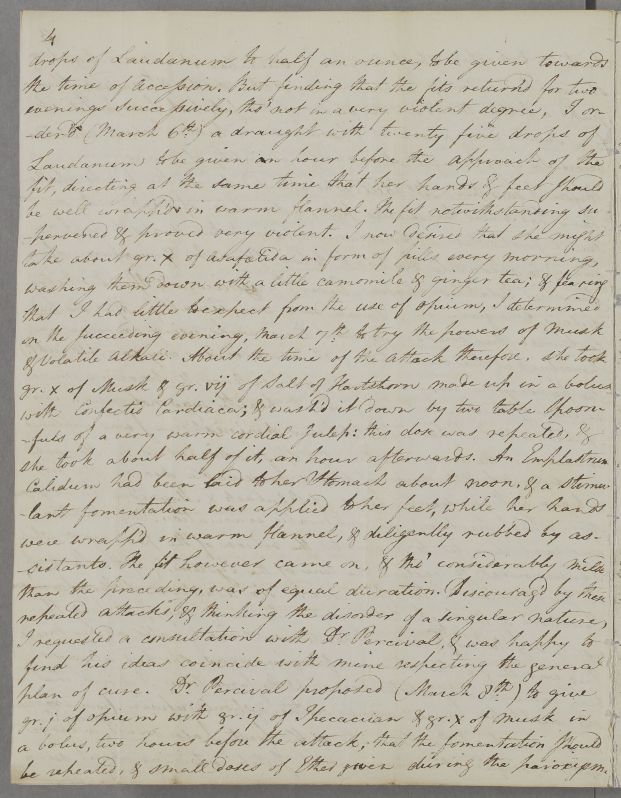 4
drops of Laudanum to half an ounce, to be given towards
the time of accession. But finding that the fits return'd for two
evenings successively, tho' not in a very violent degree, I or-
-der'd (March 6th) a draught with twenty five drops of
Laudanum to be given an hour before the approach of the
fit, directing at the same time that her hands & feet should
be well wraph'd in warm flannel. The fit notwithstanding su-
-pervened & proved very violent. I now desired that she might
take about gr. x of asafatida in form of pills every morning,
washing them down with a little camomile & ginger tea; & fearing
that I had little to expect from the use of opium, I determined
on the succeeding evening, March 7th to try the powers of Musk
& volatile alkali. About the time of the attack therefore. she took
gr. x of Musk & gr. vij of Salt of Hartshorn made up in a bolus
with Confectio Cardiaca; & wash'd it down by two table spoon-
-fuls of a very warm cordial Julep: this dose was repeated, &
she took about half of it, an hour afterwards. An Emplastrum
Calidum had been laid to her Stomach about noon, & a stimu-
-lant fomentation was applied to her feet, while her hands
were wraph'd in warm flannel, & diligently rubbed by as-
-sistants. The fit however came on, & tho' considerably milder
than the preceding, was of equal duration. Discourag'd by these
repeated attacks, & thinking the disorder of a singular nature,
I requested a consultation with Dr. Percival, & was happy to
find his ideas coincide with mine respecting the general
plan of cure. Dr. Percival proposed (March 8th) to give
gr. j of opium with gr. ij of Ipecacuan & gr. x of musk in
a bolus, two hours before the attack; that the fomentation should
be repeated, & small doses of Ether given during the paroxysm.